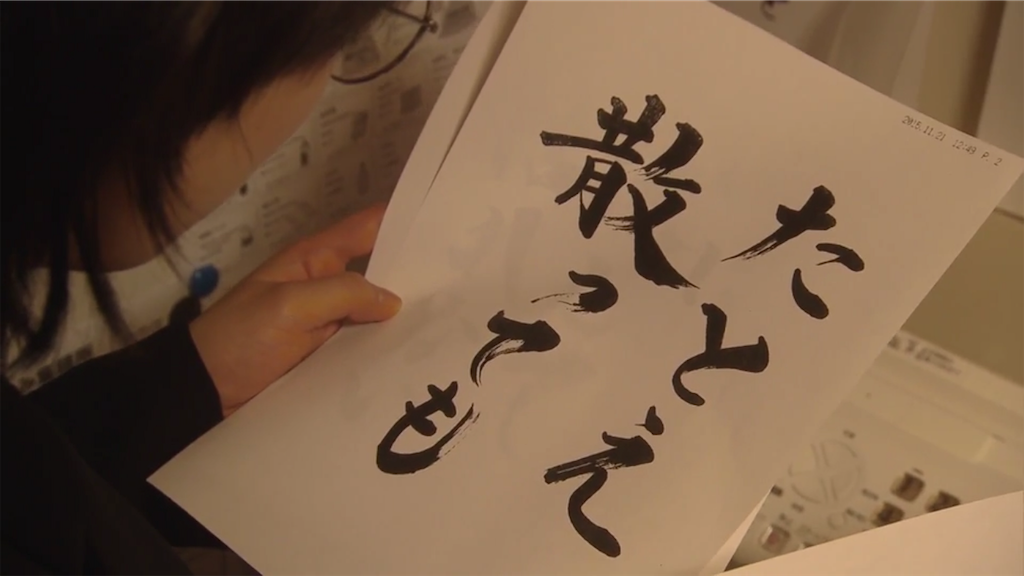 2015.11.21 12:49 P. 2
たとえ
散っても